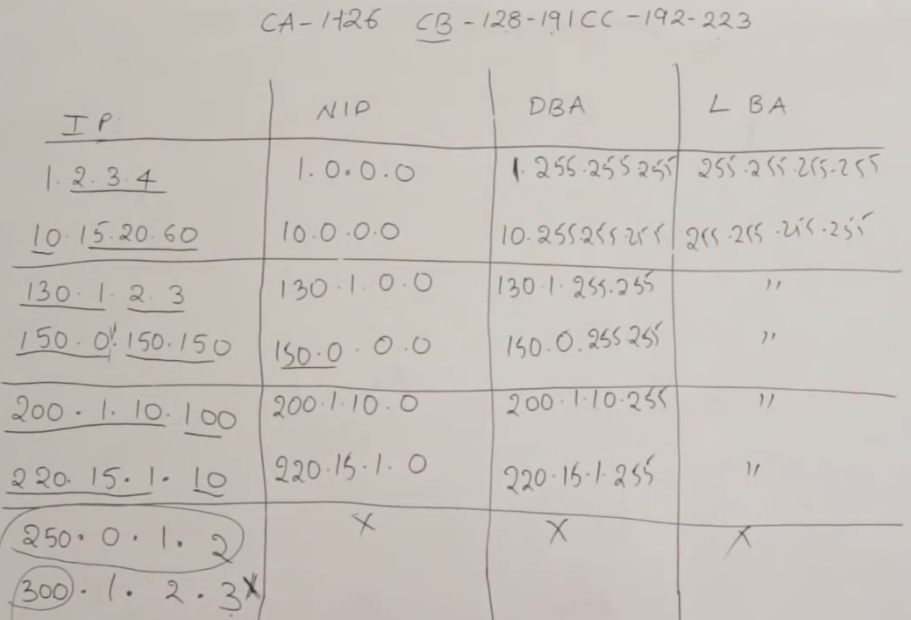 CA-1-126 CB-128-191 CC-192-223
IP. NIP DBA L BA
1.2.3.4 1.0.0.0 1.255.255.255 255.255.255.255
10.15.20.60 10.0.0.0 10.255.255.255 255.255.255.255
130.1.2.3 130.1.0.0 130.1.255.255 "
150.0.150.150 150.0.0.0 150.0.255.255 "
200.1.10.100 200.1.10.0 200.1.10.255 "
220.15.1.10 220.15.1.0 220.15.1.255 "
250.0.1.2 X X X
300.1.2.3 X